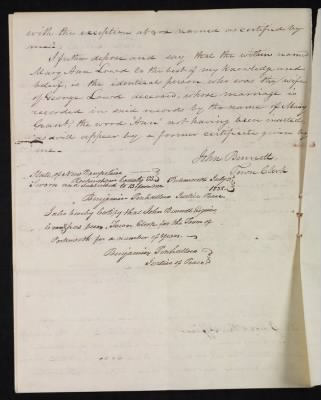 with the exception above named as certified by
me.
I further depose and say that the within named
Mary Ann Lourd to the best of my knowledge and
belief, is the identical person who was the wife
of George Lourd deceased, whose marriage is
recorded in said record by the name of Mary
Grant; the word Ann not having been inserted
as will appear by a former certificate given by
me.
John Bennett
Town Clerk
State of New Hampshire
Rockingham County SS. Portsmouth July
Sworn and subscribed to Before me 1838.
Benjamin Penhallow Justice Peace
I also hereby Certify that John Bennett Esquire
is & has been Town Clerk for the Town of
Portsmouth for a number of years.
Benjamin Penhallow
Justice of Peace